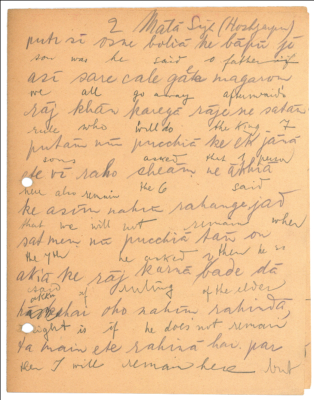 2 Mātā Sŷk (Hoshyarpur)
putr sī osne boliā ke bāpū jī
son was he said o father
asī sare cale gåte magaron
we all go away afterwards
rāj khān karegā rājene satān
rule who will do the King 7
putān nūn pucchiā ke ek jānā
sons asked that 1 person
ete vī raho sheān ne ākhiā
here also remain the 6 said
ke asīm nahīn rahange jad
that we will not remain when
satmen nā pucchiā tān on
the 7th he asked then he
akiā ke rāj karnā bade dā
said of ruling of the elder
hai oho nahīn rahindā,
right is if he does not remain
tā main ete rahinā han. par
then I will remain here but